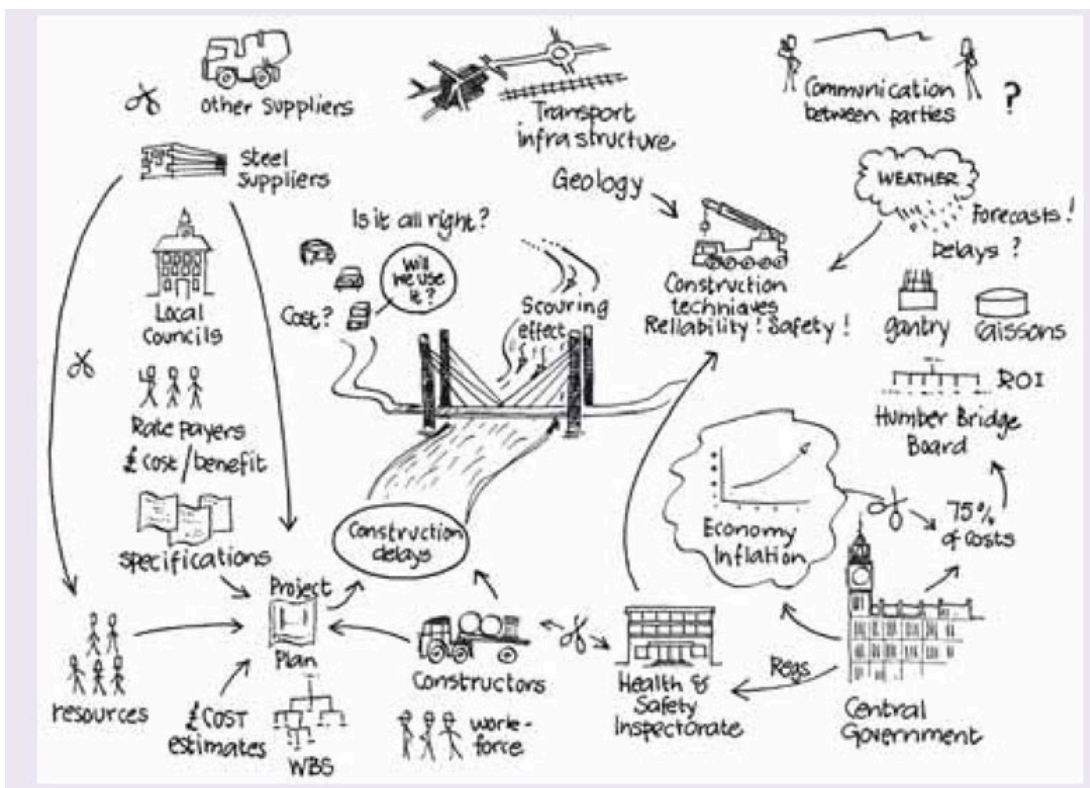 other suppliers
Transport
infrastructure
Communication
between parties
?
Steel
suppliers
Geology
WEATHER
Forecasts!
Delays?
Is it all right?
Will
we use
it?
Cost?
Local
Councils
Scouring
effect
Construction
techniques
Reliability! Safety!
gantry
caissons
ROI
Humber Bridge
Board
Rate payers
£ Cost/benefit
specifications
Construction
delays
Economy
Inflation
75%
of costs
Project
Plan
resources
£ COST
estimates
WBS
Constructors
work-
force
Health &
Safety
Inspectorate
Regs
Central
Government